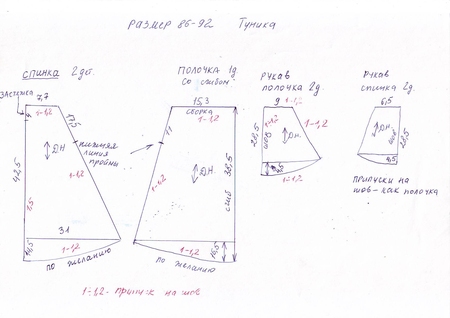 размер 86-92 Туника
спинка 2 дет.
застежка
7,7
1-1,2
17,5
нижняя
линия
проймы
ДН
42,5
31
1-1,2
по желанию
полочка 1 д
со сгибом
15,3
сборка
1-1,2
11
1-1,2
ДН
38,5
сгиб
1-1,2
по желанию
рукав
полочка 2 д.
9 1-1,2
28,5
1-1,2
шов
ДН.
1-1,2
1-1,2
Рукав
спинка 2 д.
6,5
ДН
шов
4,5
припуски на
шов-как полочка
1-1,2- припуск на шов